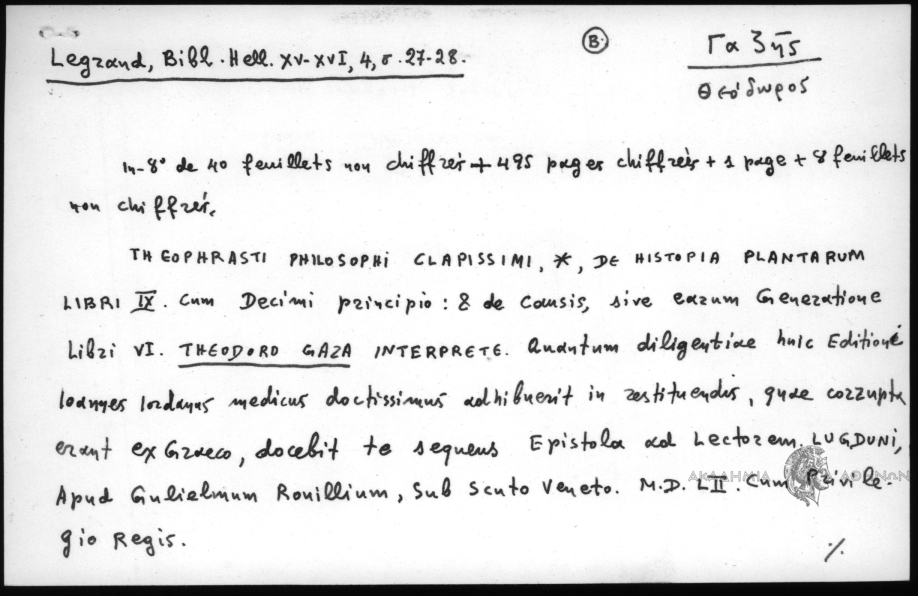 Legrand, Bibl. Hell. XV-XVI, 4, σ. 27-28.
B.
Γαζῆς
Θεόδωρος
in-8° de 40 feuillets non chiffrés + 495 pages chiffrées + 1 page + 8 feuillets
non chiffrés.
THEOPHRASTI PHILOSOPHI CLAPISSIMI, *, DE HISTOPIA PLANTARUM
LIBRI IX. Cum Decimi principio: & de Causis, sive earum Generatione
Libri VI. THEODORO GAZA INTERPRETE. Quantum diligentiae huic Editioné
Ioannes Iordanus medicus doctissimus adhibuerit in restituendis, quae corrupta
erant ex Graeco, docebit te sequens Epistola ad Lectorem. LUGDUNI,
Apud Gulielmum Rouillium, Sub Scuto Veneto. M.D. LII. Cum Privile-
gio Regis.
ΑΚΑΔΗΜΙΑ ΑΘΗΝΩΝ
./.